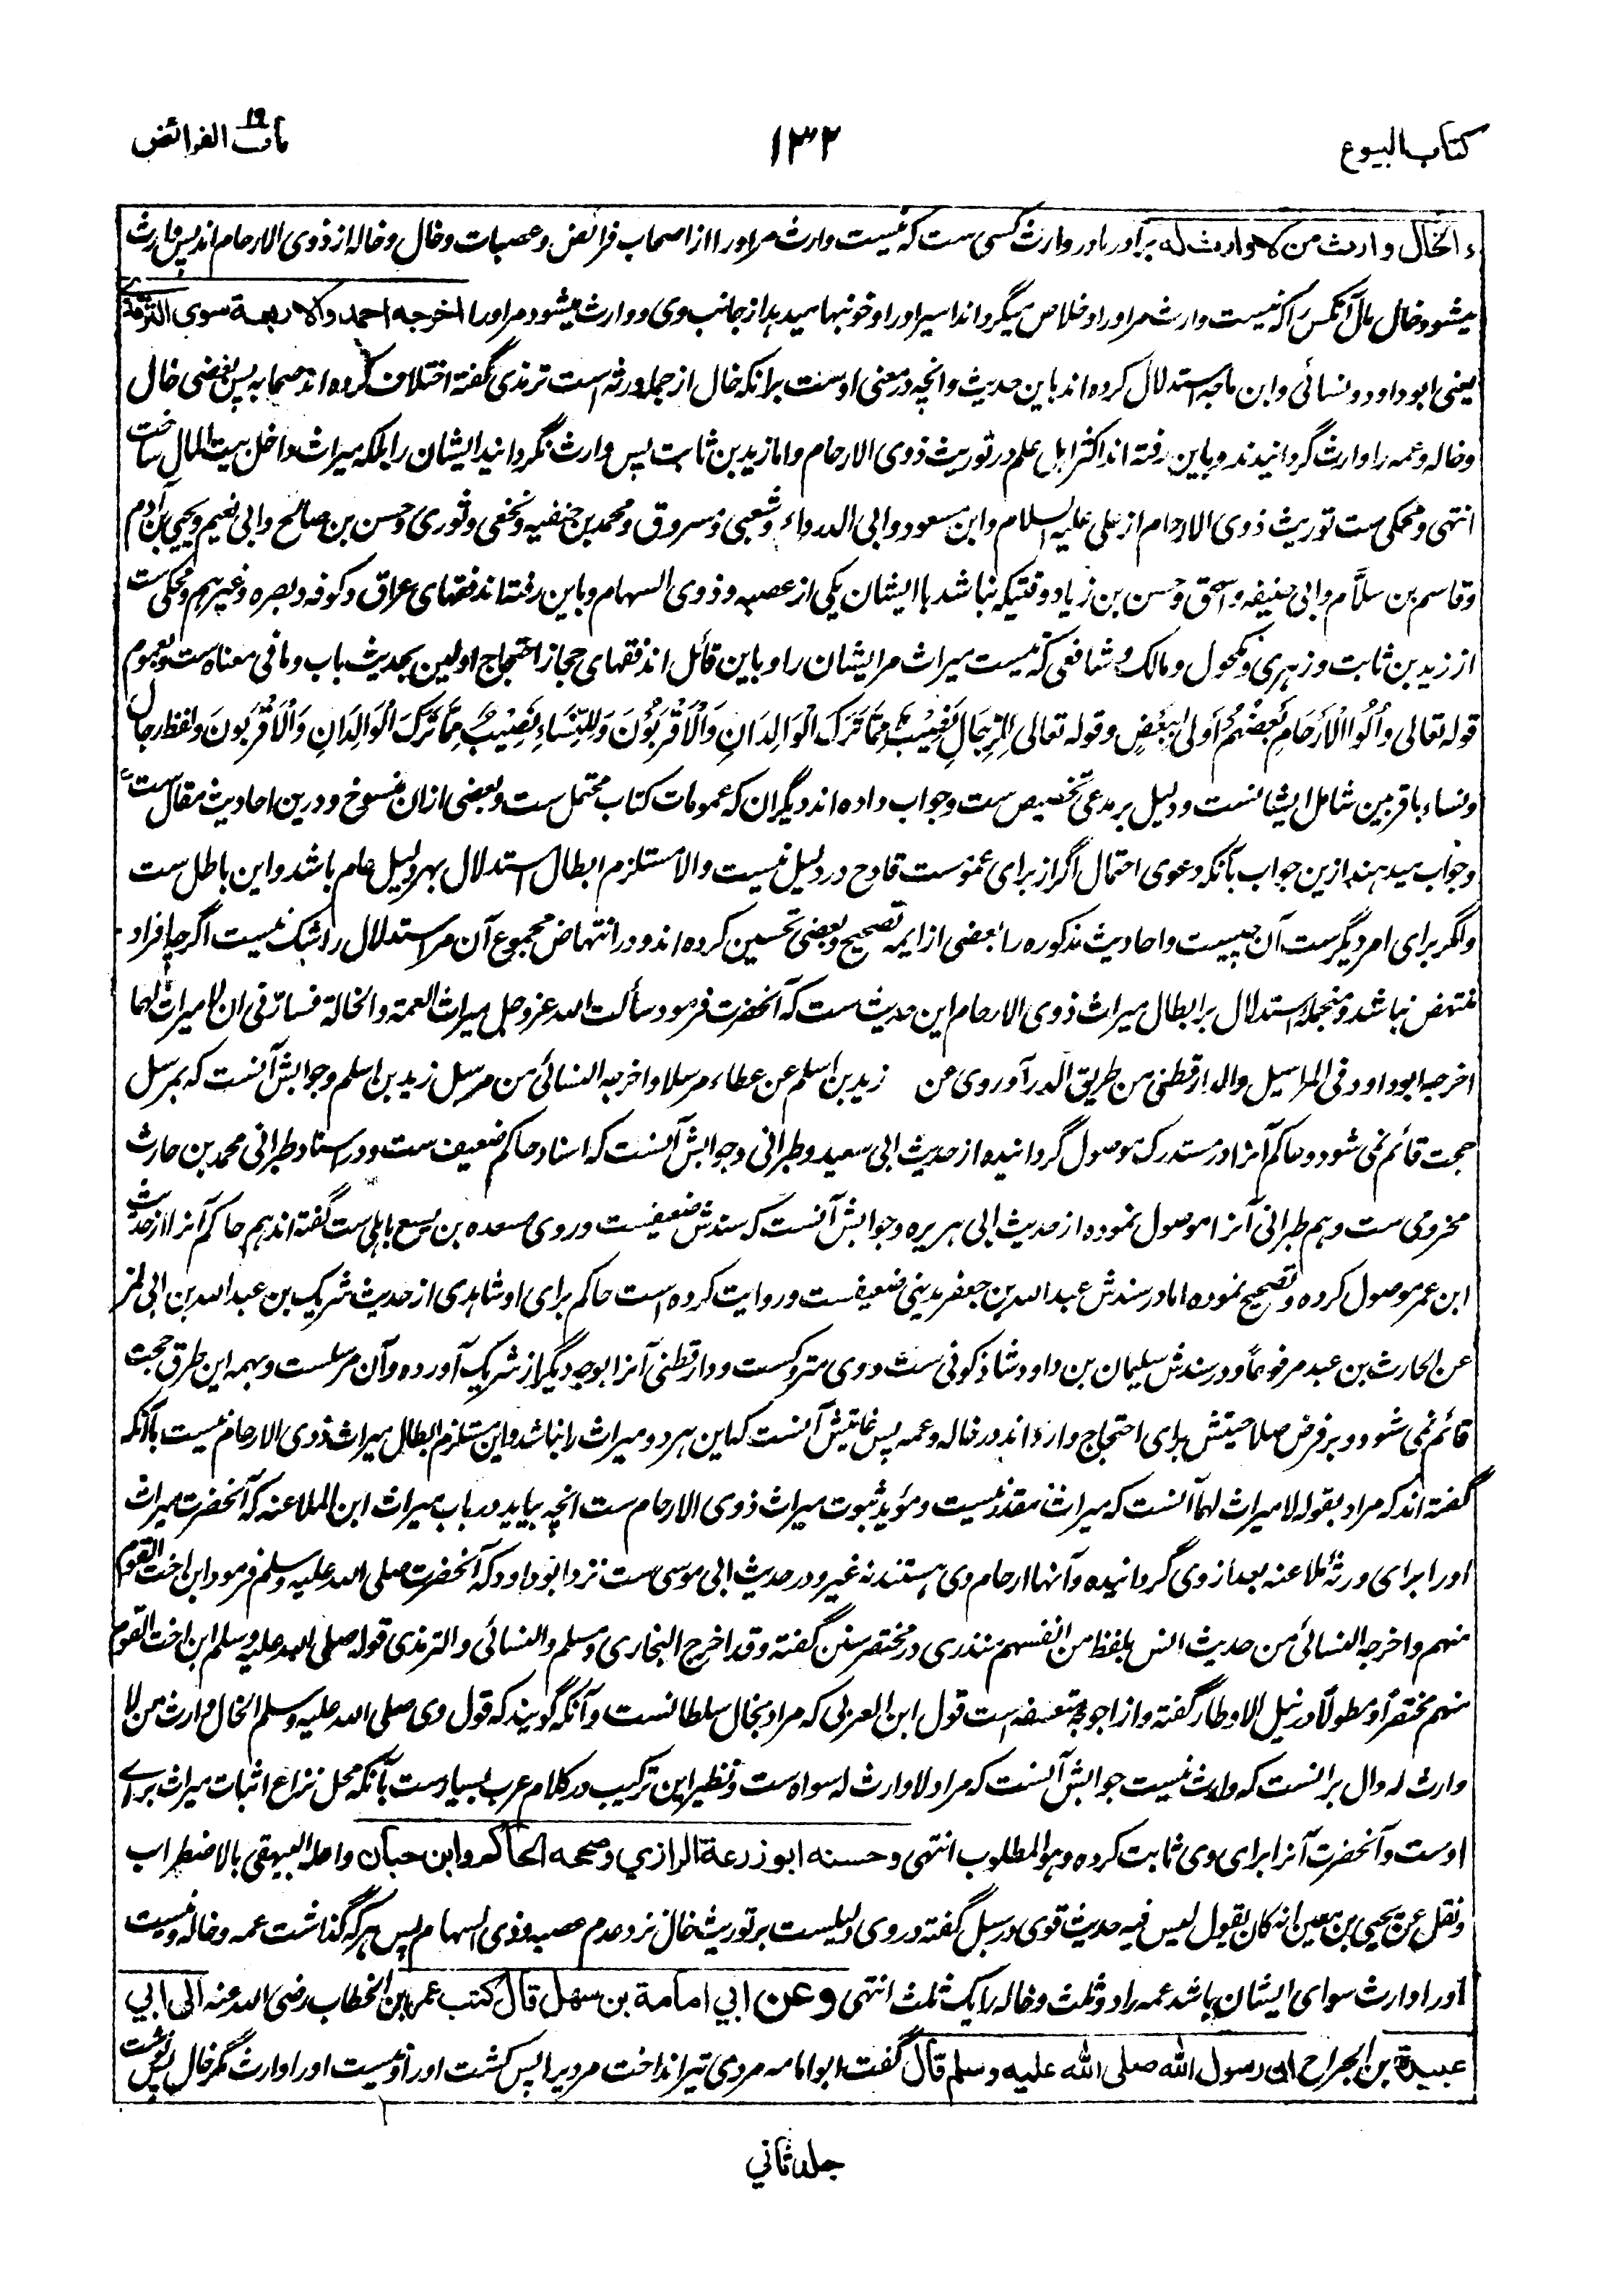 كتاب البيوع
١٣٢
باب الفرائض
الخال وارث من لا وارث له برادر مادر وارث کسی ست که نیست وارث مر او را از اصحاب فرائض و عصبات و خال و خاله از ذوی الارحام اند پس وارث
میشود خال مال آنکس را که نیست وارث مر او را و خلاص میگرداند اسیر او را و خونبها میدهد از جانب وی و وارث میشود مر او را اخرجه احمد والاربعة سوى الترمذي
یعنی ابو داود و نسائی و ابن ماجه استدلال کرده اند باین حدیث و انچه در معنی اوست بر انکه خال از جمله ورثه است ترمذی گفته اختلاف کرده اند صحابه پس بعضی خال
و خاله و عمه را وارث گردانیدند و باین رفته اند اکثر اهل علم در توریث ذوی الارحام و اما زید بن ثابت پس وارث نگردانید ایشان را بلکه میراث داخل بیت المال ساخت
انتهی و محکی ست توریث ذوی الارحام از علی علیه السلام و ابن مسعود و ابی الدرداء و شعبی و مسروق و محمد بن حنفیه و نخعی و ثوری و حسن بن صالح و ابی نعیم و یحیی بن آدم
و قاسم بن سلّام و ابی حنیفه و اسحق و حسن بن زیاد وقتیکه نباشد با ایشان یکی از عصبه و ذوی السهام و باین رفته اند فقهای عراق و کوفه و بصره و غیرهم و محکی ست
از زید بن ثابت و زهری و مکحول و مالک و شافعی که نیست میراث مر ایشان را و باین قائل اند فقهای حجاز احتجاج اولین بحدیث باب و ما فی معناه ست و بعموم
قوله تعالی وَأُولُوا الْأَرْحَامِ بَعْضُهُمْ أَوْلَى بِبَعْضٍ و قوله تعالی لِلرِّجَالِ نَصِيْبٌ مِمَّا تَرَكَ الْوَالِدَانِ وَالْأَقْرَبُوْنَ وَلِلنِّسَاءِ نَصِيْبٌ مِمَّا تَرَكَ الْوَالِدَانِ وَالْأَقْرَبُونَ و لفظ رجال
و نساء با قربین شامل ایشانست و دلیل بر مدعی تخصیص ست و جواب داده اند دیگران که عمومات کتاب محتمل ست و بعضی ازان منسوخ و درین احادیث مقال ست
و جواب میدهند ازین جواب بآنکه دعوی احتمال اگر از برای عموست قادح در دلیل نیست و الا مستلزم ابطال استدلال بهر دلیل عام باشد و این باطل ست
و اگر برای امر دیگرست آن چیست و احادیث مذکوره را بعضی از ایمه تصحیح و بعضی تحسین کرده اند و در انتهاض مجموع آن مر استدلال را شک نیست اگرچه افراد
منتهض نباشد و منجمله استدلال بر ابطال میراث ذوی الارحام این حدیث ست که آنحضرت فرمود سألت الله عز و جل میراث العمة والخالة فسارّنی ان لا میراث لهما
اخرجه ابو داود فی المراسیل والدارقطنی من طریق الدرآوردی عن زید بن اسلم عن عطاء مرسلا و اخرجه النسائی من مرسل زید بن اسلم و جوابش آنست که بمرسل
حجت قائم نمی شود و حاکم آنرا در مستدرک موصول گردانیده از حدیث ابی سعید و طبرانی و جوابش آنست که اسناد حاکم ضعیف ست و در اسناد طبرانی محمد بن حارث
مخزومی ست و هم طبرانی آنرا موصول نموده از حدیث ابی هریره و جوابش آنست که سندش ضعیفست و در وی مسعده بن یسع باهلی ست گفته اند هم حاکم آنرا از حدیث
ابن عمر موصول کرده و تصحیح نموده اما در سندش عبد الله بن جعفر مدینی ضعیفست و روایت کرده است حاکم برای او شاهدی از حدیث شریک بن عبد الله بن ابی نمر
عن الحارث بن عبد مرفوعاً و در سندش سلیمان بن داود شاذکونی ست و وی متروکست و دارقطنی آنرا بوجه دیگر از شریک آورده و آن مرسلست و بهمه این طرق حجت
قائم نمی شود و بر فرض صلاحیتش برای احتجاج وارد اند در خاله و عمه پس غایتش آنست که این هر دو میراث را نباشد و این مستلزم ابطال میراث ذوی الارحام نیست با آنکه
گفته اند که مراد بقوله لا میراث لهما آنست که میراث مقدر نیست و مؤید ثبوت میراث ذوی الارحام ست انچه بیاید در باب میراث ابن الملاعنه که آنحضرت میراث
او را برای ورثهٔ ملاعنه بعد از وی گردانیده و آنها ارحام وی هستند نه غیر و در حدیث ابی موسی ست نزد ابو داود که آنحضرت صلی الله علیه وسلم فرمود ابن اخت القوم
منهم و اخرجه النسائی من حدیث انس بلفظ من انفسهم منذری در مختصر سنن گفته و قد اخرج البخاری و مسلم والنسائی والترمذی قوله صلی الله علیه وسلم ابن اخت القوم
منهم مختصراً و مطولاً در نیل الاوطار گفته و از اجوبهٔ متعسفه است قول ابن العربی که مراد بخال سلطانست و آنکه گویند که قول وی صلی الله علیه وسلم الخال وارث من لا
وارث له دال برانست که وارث نیست جوابش آنست که مراد لا وارث له سواه ست و نظیر این ترکیب در کلام عرب بسیارست با آنکه محل نزاع اثبات میراث برای
اوست و آنحضرت آنرا برای وی ثابت کرده و هو المطلوب انتهی وحسنه ابو زرعة الرازي وصححه الحاكم وابن حبان واعله البیهقی بالاضطراب
و نقل عن یحیی بن معین انه کان یقول لیس فیه حدیث قوی در سبل گفته در وی دلیلست بر توریث خال نزد عدم عصبه و ذوی السهام پس هر که گذاشت عمه و خاله و نیست
او را وارث سوای ایشان باشد عمه را دو ثلث و خاله را یک ثلث انتهی وعن ابي امامة بن سهل قال كتب عمر بن الخطاب رضی الله عنه الى ابي
عبيدة بن الجراح ان رسول الله صلى الله عليه وسلم قال گفت ابو امامه مردی تیر انداخت مردیرا پس کشت او را و نیست او را وارث مگر خال پس نوشت
جلد ثاني